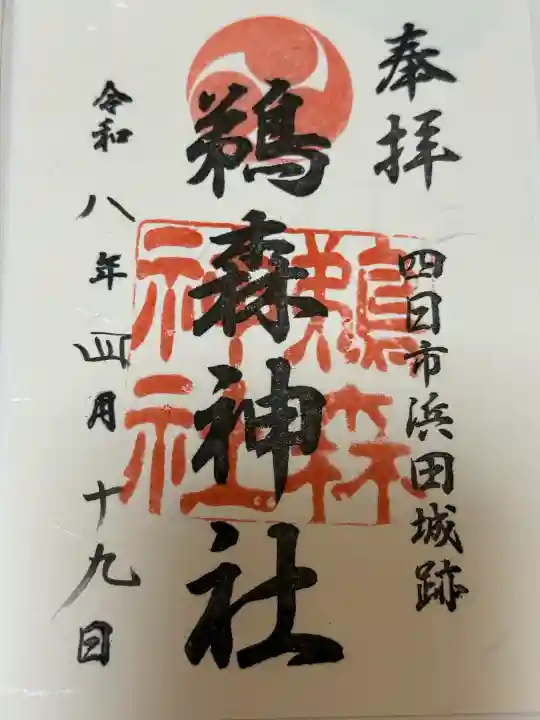 奉拝
四日市浜田城跡
鵜森神社
鵜森
神社
令和八年四月十九日